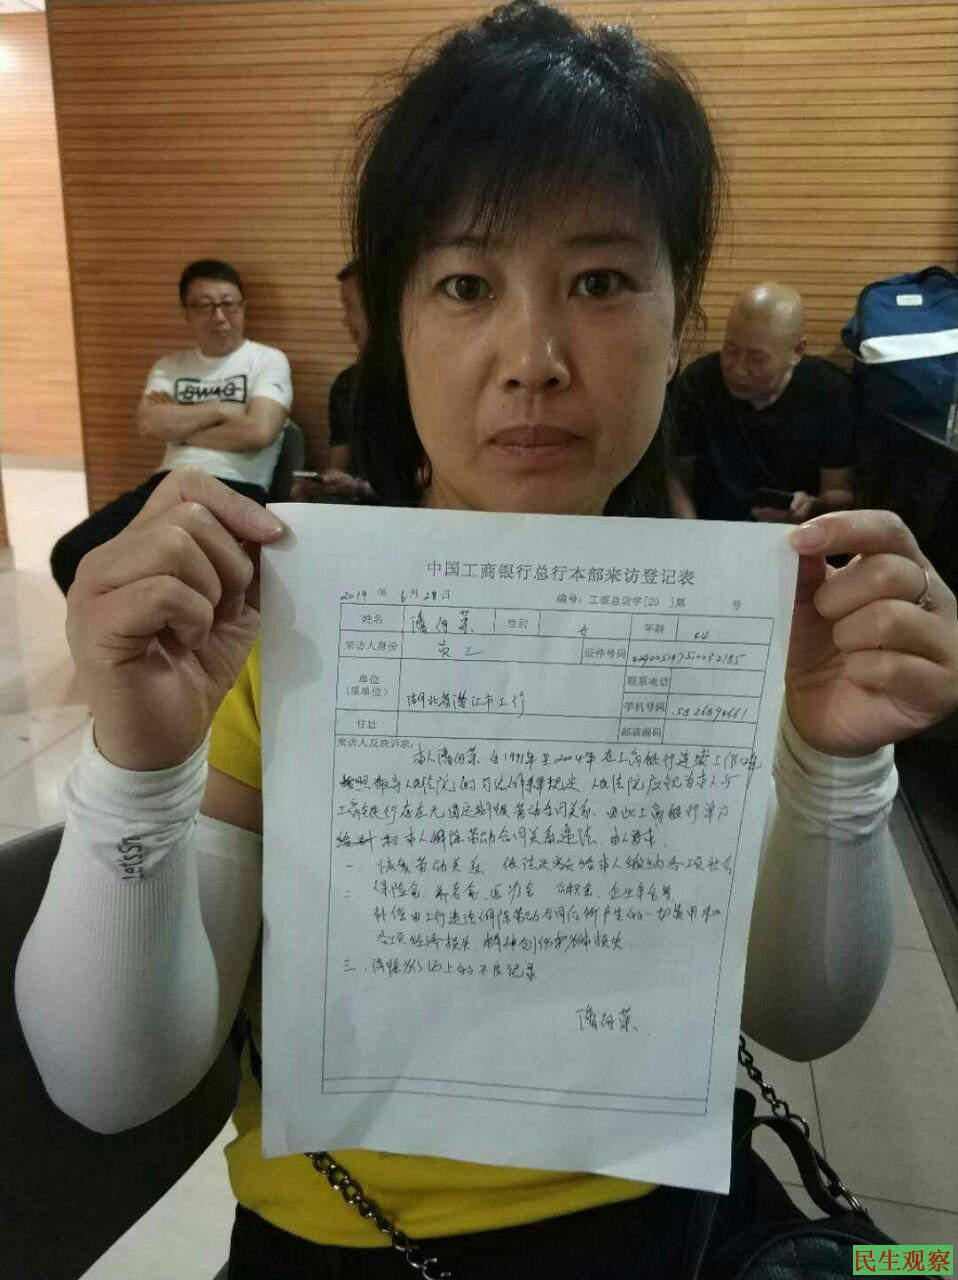 中国工商银行总行本部来访登记表
2019 年 6 月 28 日 编号：工信总访字[20 ]第 号
姓名 性别 女 年龄 44
来访人身份 员工 证件号码
单位（原单位） 湖北省潜江市工行 联系电话
手机号码
住址 邮政编码
来访人反映诉求：
本人 自1991年至2004年在工商银行连续工作
按照 人民法院的司法 规定，人民法院应视为本人与
工商银行存在无固定期限劳动合同关系，因此工商银行单方
和本人解除劳动合同关系违法，本人要求
一、恢复劳动关系，依法 给本人缴纳各项社会
保险金、养老金、医疗金、公积金、企业年金等
二、补偿由工行违法解除劳动合同后所产生的一切费用和
各项经济损失、精神创伤和 损失
三、清除 上的不良记录
SWAG
LetsSn
民生观察